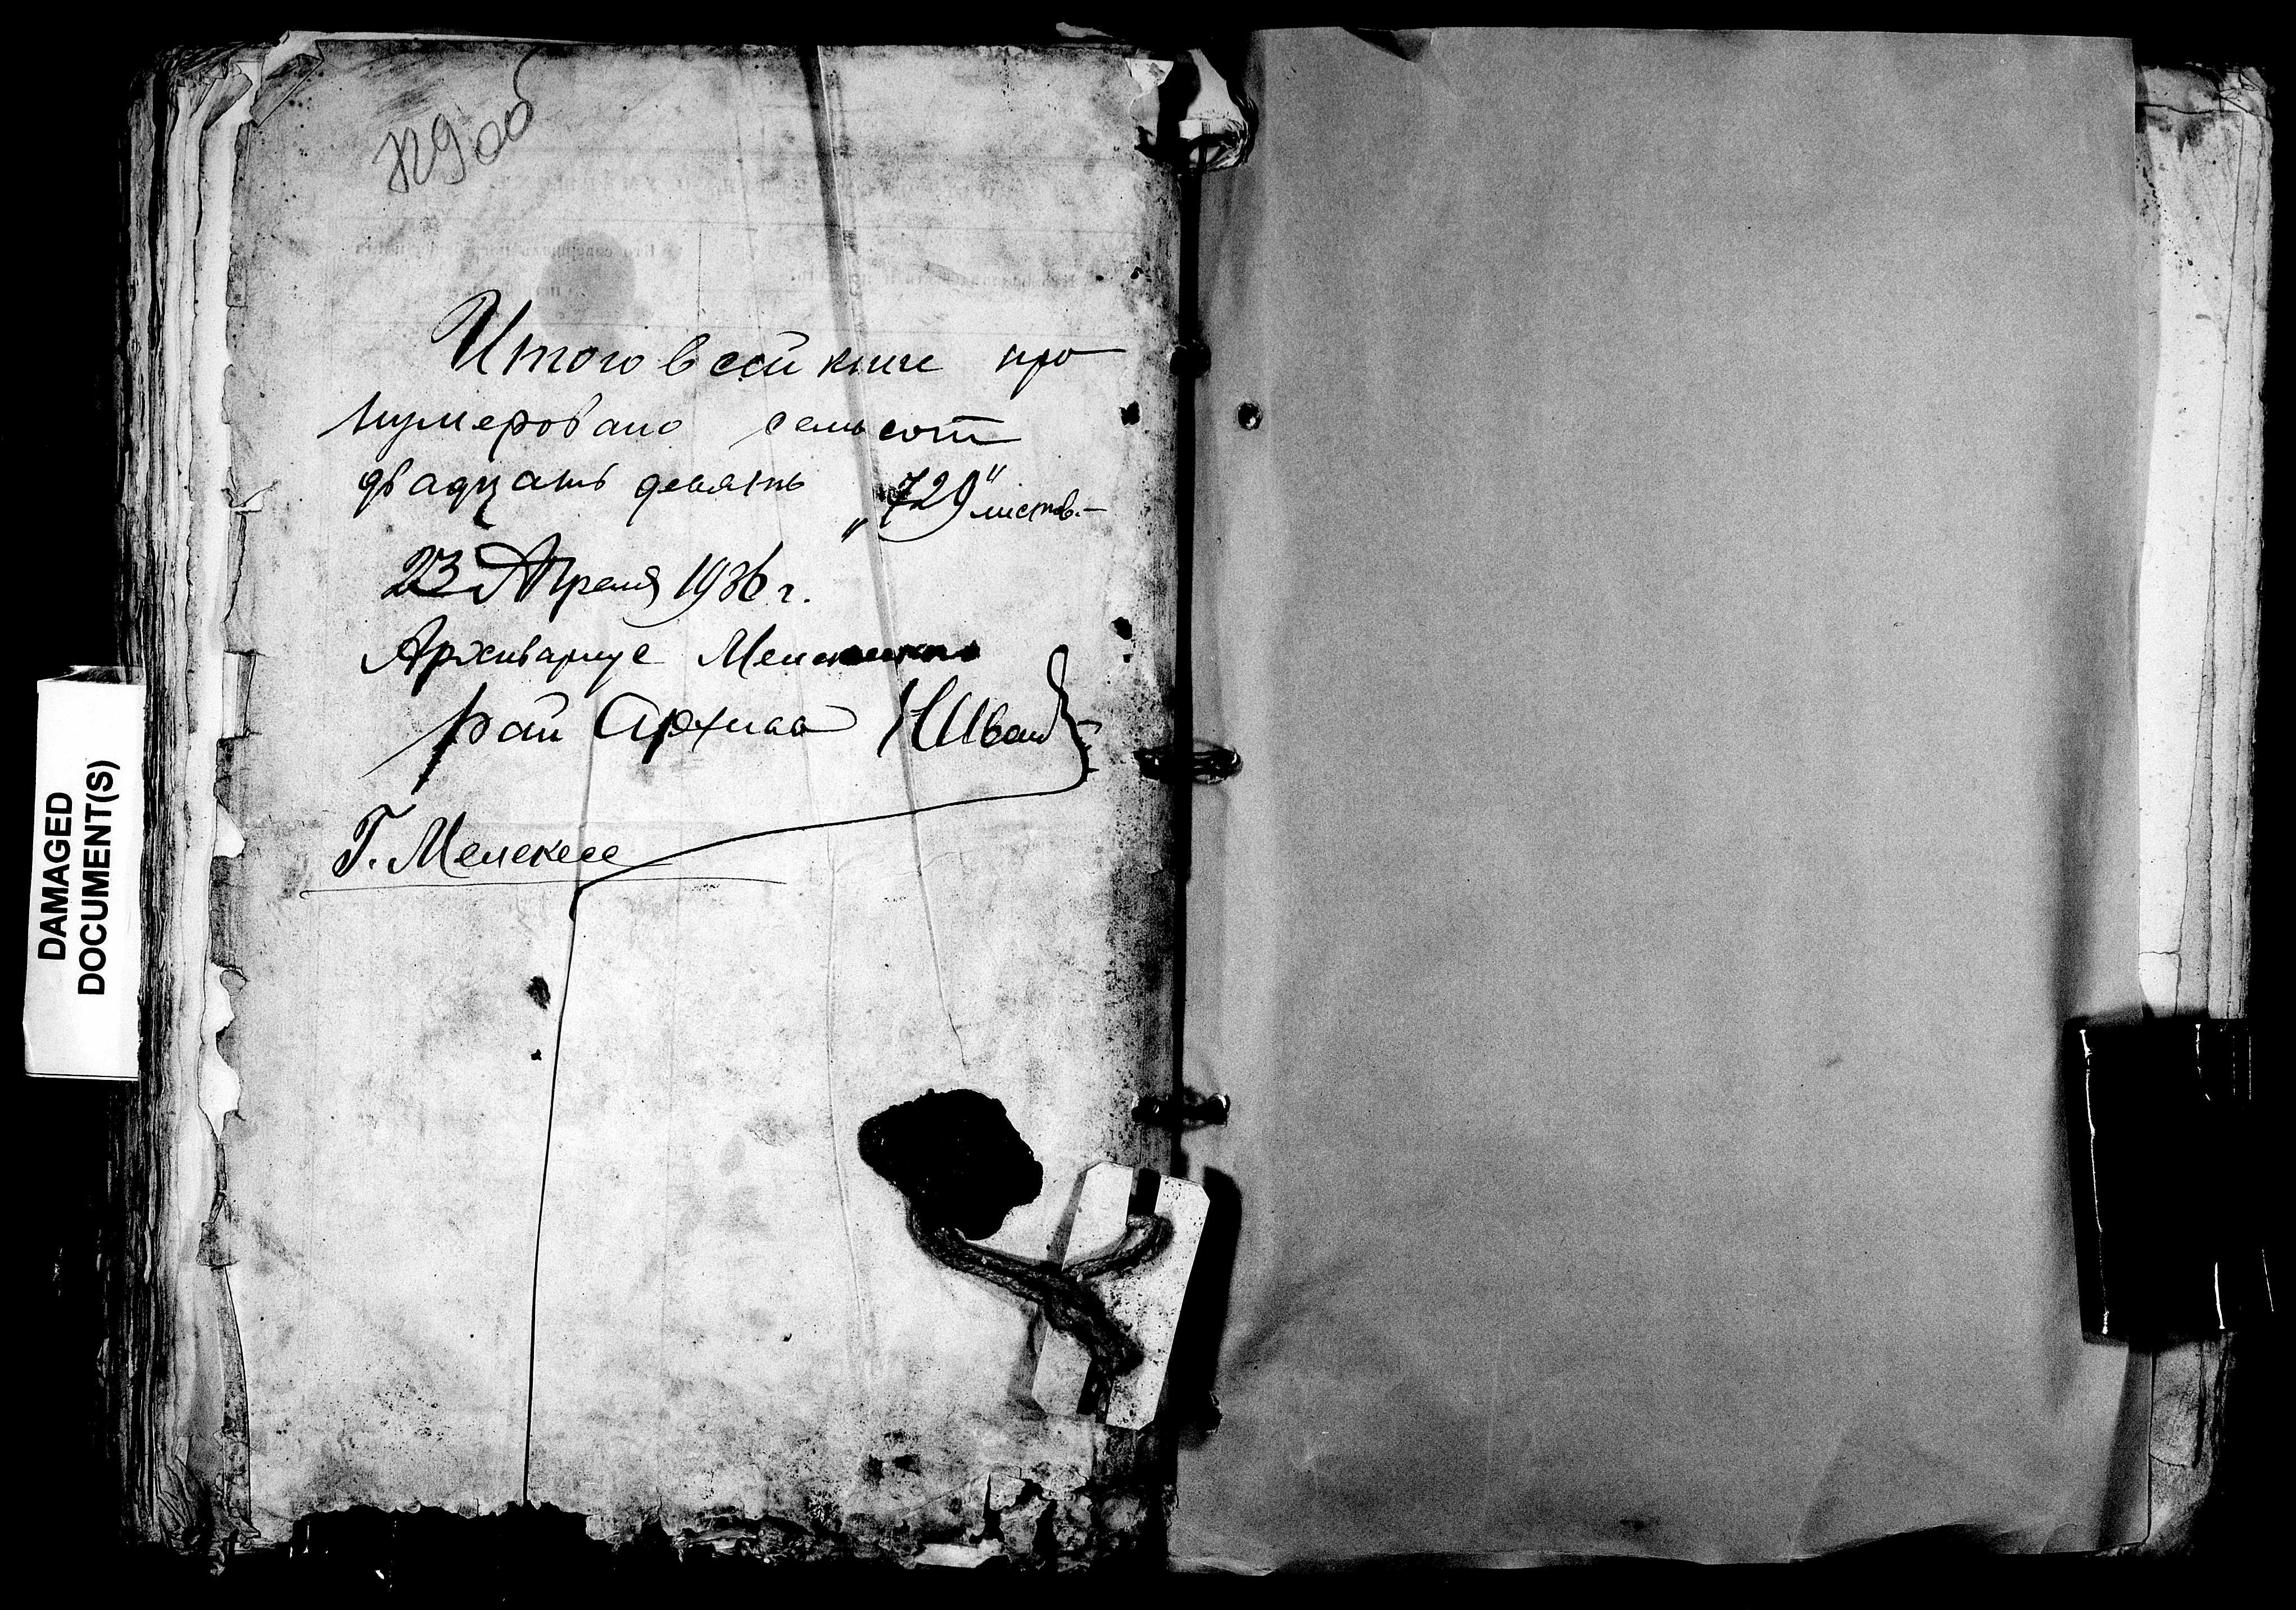 729 об
Итого в сей книге про
нумеровано семьсот
двадцать девять „729“ листов.—
23 Апреля 1936 г.
Архивариус Мелекесского
рай Архива НИванов
Г. Мелекесс
DAMAGED
DOCUMENT(S)